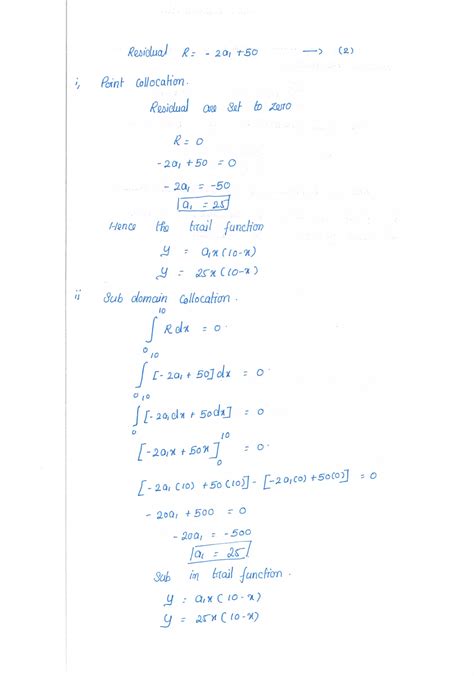 Residual R = - 2a₁ + 50 → (2)
i, Point Collocation.
Residual are set to zero
R = 0
-2a₁ + 50 = 0
-2a₁ = -50
a₁ = 25
Hence the trail function
y = a₁x (10-x)
y = 25x (10-x)
ii Sub domain Collocation.
∫₀¹⁰ R dx = 0.
∫₀¹⁰ [-2a₁ + 50] dx = 0
∫₀¹⁰ [-2a₁dx + 50dx] = 0
[-2a₁x + 50x]₀¹⁰ = 0.
[-2a₁(10) + 50(10)] - [-2a₁(0) + 50(0)] = 0
-20a₁ + 500 = 0
-20a₁ = -500
a₁ = 25
Sub in trail function.
y = a₁x (10-x)
y = 25x (10-x)